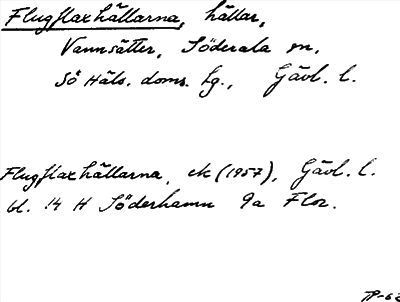 Flugflaxhällarna, hällar,
Vannsätter, Söderala sn.
Sö Häls. doms. tg., Gävl. l.
Flugflaxhällarna, ek (1957), Gävl. l.
bl. 14 H Söderhamn 9a Flor.